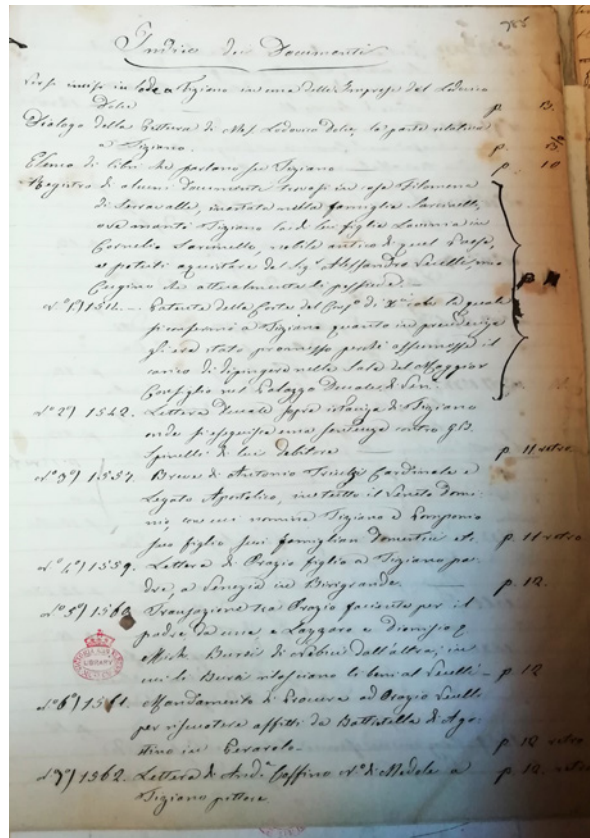 Indice dei Documenti
in lode a Tiziano in una delle Imprese del Lodovico
Dolce p. 13.
Dialogo della Pittura di Mes. Lodovico Dolce, la parte relativa
a Tiziano. p.
Elenco di libri che parlano su Tiziano p. 10
Registro di alcuni Documenti in casa
di Serravalle, nella famiglia Sarcinelli,
Tiziano figlia Lavinia in
Cornelio Sarcinello, nobile antico di quel Paese,
e potuti acquistare dal Sigr. Alessandro Vecelli, mio
Cugino che attualmente li possiede. p
N.º 1º) 1514. Patente della
si a Tiziano quanto in precedenza
gli era stato promesso perchè assumesse il
carico di dipingere nella Sala del Maggior
Consiglio nel Palazzo Ducale di
Nº 2º) 1542. Lettera Ducale sopra istanza di Tiziano
onde si eseguisca una sentenza contro G.B.
Spinelli di lui debitore p. 11 retro.
Nº 3º) 1557. Breve di Antonio Cardinale e
Legato Apostolico, in tutto il Veneto Domi-
nio, con cui nomina Tiziano e Pomponio
suo figlio suoi famigliari p. 11 retro
Nº 4º) 1559. Lettera di Orazio figlio a Tiziano pa-
dre, a Venezia in Birigrande. p. 12.
Nº 5º) 1560 Transazione tra Orazio faciente per il
padre, da una, e Lazzaro e Dionisio
dall'altra; in
cui li rilasciano li beni al Vecelli p. 12
Nº 6º) 1561. Mandamento di Procura ad Orazio Vecelli
per riscuotere affitti da Battistella di Ago-
stino in Perarolo. p. 12 retro
Nº 7º) 1562. Lettera di And.ª a p. 12. retro
Tiziano pittore.